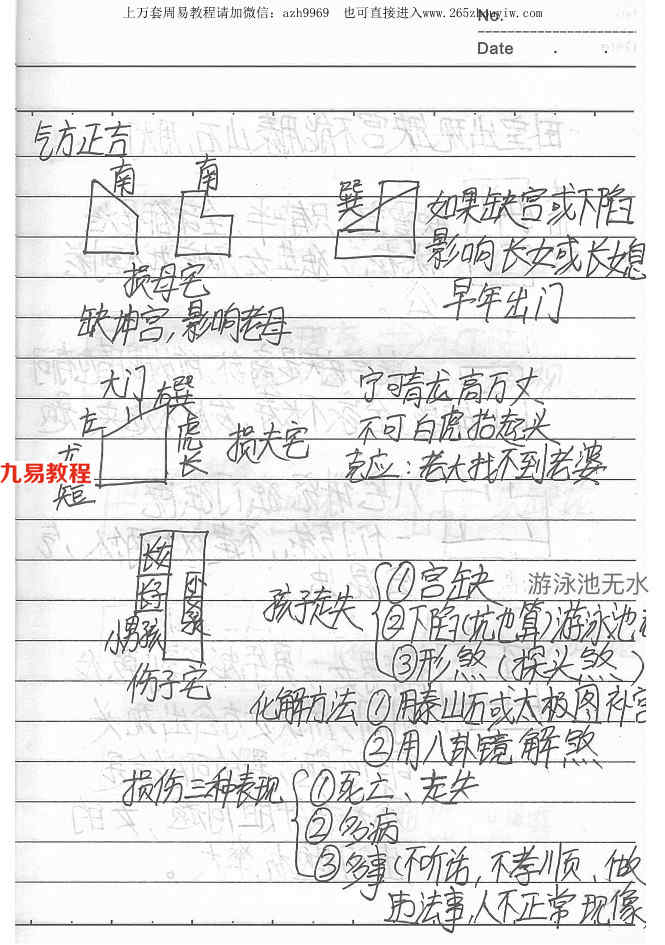 上万套周易教程请加微信：azh9969　也可直接进入www.265zhouyiw.com
No.
Date
气方正吉
南 南
巽 如果缺宫或下陷
影响长女或长媳
损母宅 早年出门
缺坤宫，影响老母
大门 宁可青龙高万丈
左 右巽 不可白虎抬起头
龙短 虎长 损夫宅
克应：老大找不到老婆
九易教程
长女
长子
小男孩
伤子宅
孩子走失 ①宫缺
游泳池无水
②下陷(坑也算)游泳池
③形煞（探头煞）
化解方法 ①用泰山石或太极图补宫
②用八卦镜解煞
损伤三种表现 ①死亡、走失
②多病
③多事(不听话，不孝顺、做
违法事，人不正常现像